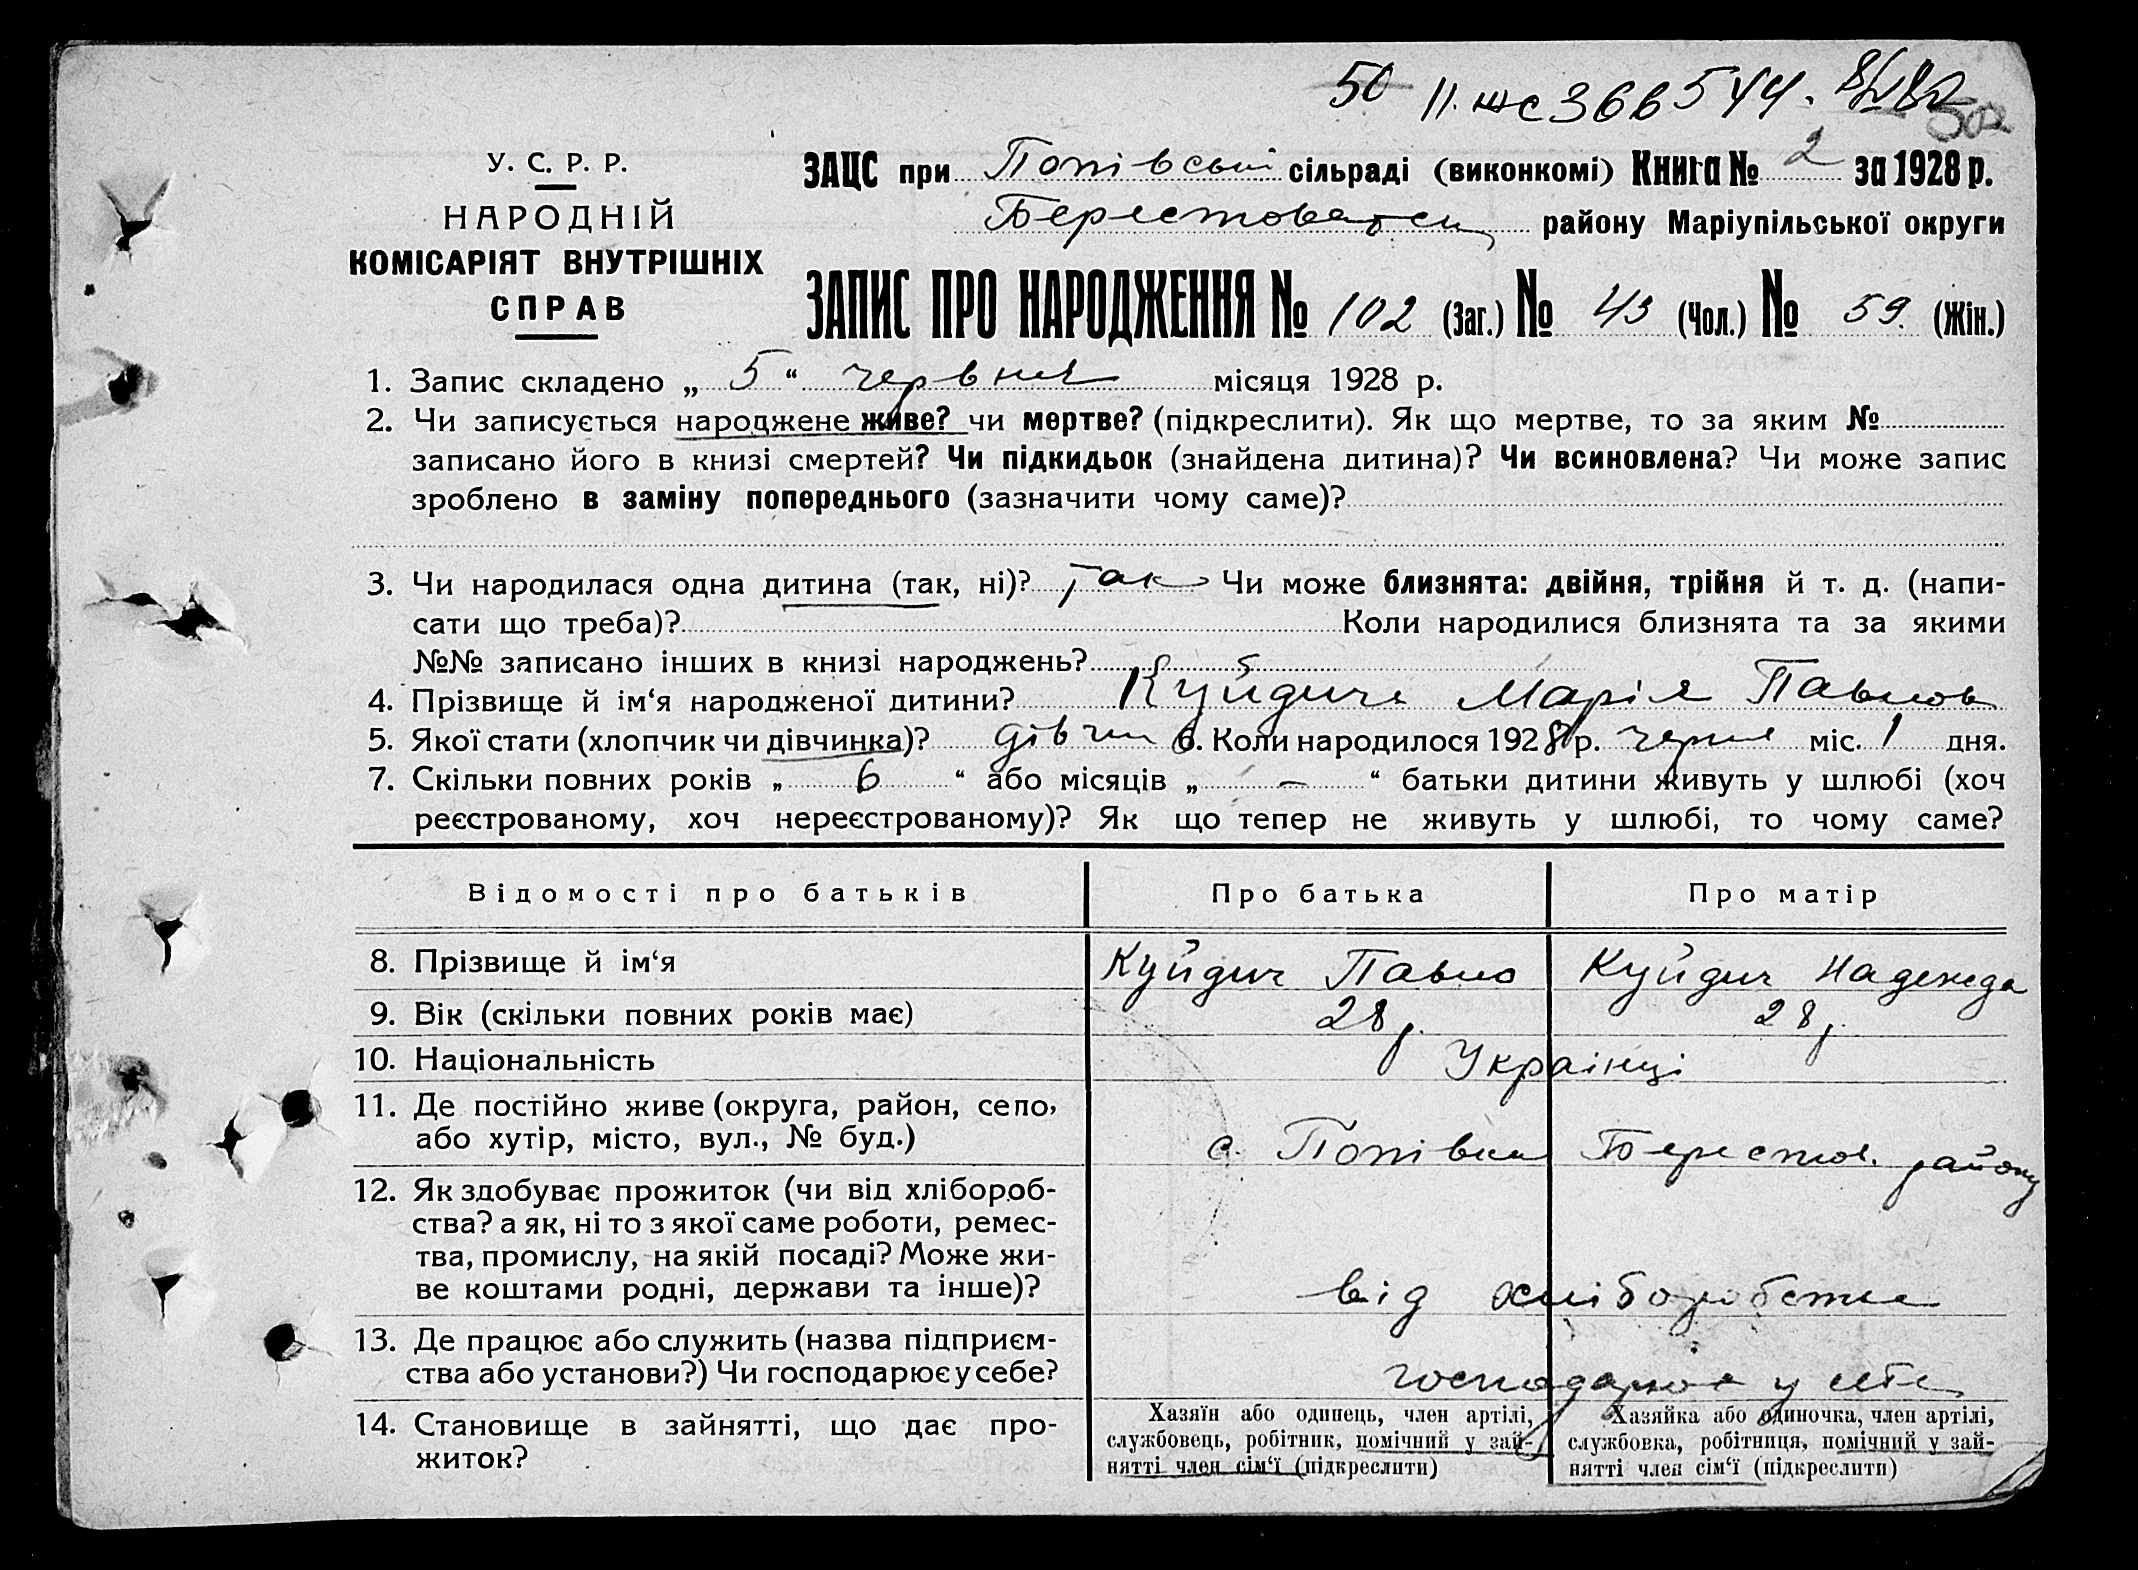 50 II.ЖС 366544.
502
У. С. Р. Р.
НАРОДНІЙ
КОМІСАРІЯТ ВНУТРІШНІХ
СПРАВ
ЗАЦС при Попівській сільраді (виконкомі) Книга № 2 за 1928 р.
району Маріупільської округи
ЗАПИС ПРО НАРОДЖЕННЯ № 102 (Заг.) № 43 (Чол.) № 59. (Жін.)
1. Запис складено „ 5 “ червня місяця 1928 р.
2. Чи записується народжене живе? чи мертве? (підкреслити). Як що мертве, то за яким №
записано його в книзі смертей? Чи підкидьок (знайдена дитина)? Чи всиновлена? Чи може запис
зроблено в заміну попереднього (зазначити чому саме)?
3. Чи народилася одна дитина (так, ні)? так Чи може близнята: двійня, трійня й т. д. (напи-
сати що треба)? Коли народилися близнята та за якими
№№ записано інших в книзі народжень?
4. Прізвище й ім‘я народженої дитини? Куйдич Марія Павлов
5. Якої стати (хлопчик чи дівчинка)? дівчин 6. Коли народилося 1928 р. черня міс. 1 дня.
7. Скільки повних років „ 6 “ або місяців „ – “ батьки дитини живуть у шлюбі (хоч
реєстрованому, хоч нереєстрованому)? Як що тепер не живуть у шлюбі, то чому саме?
Відомості про батьків Про батька Про матір
8. Прізвище й ім‘я Куйдич Павло Куйдич Надежда
9. Вік (скільки повних років має) 28 р. 28 р.
10. Національність Українці
11. Де постійно живе (округа, район, село,
або хутір, місто, вул., № буд.) с. Попівка Берестов. району
12. Як здобуває прожиток (чи від хлібороб-
ства? а як, ні то з якої саме роботи, ремес-
тва, промислу, на якій посаді? Може жи-
ве коштами родні, держави та інше)? від хліборобства
13. Де працює або служить (назва підприєм-
ства або установи?) Чи господарює у себе? господарює у себе
14. Становище в зайнятті, що дає про-
житок?
Хазяїн або одинець, член артілі,
службовець, робітник, помічний у зай-
нятті член сім‘ї (підкреслити)
Хазяйка або одиночка, член артілі,
службовка, робітниця, помічний у зай-
нятті член сім‘ї (підкреслити)